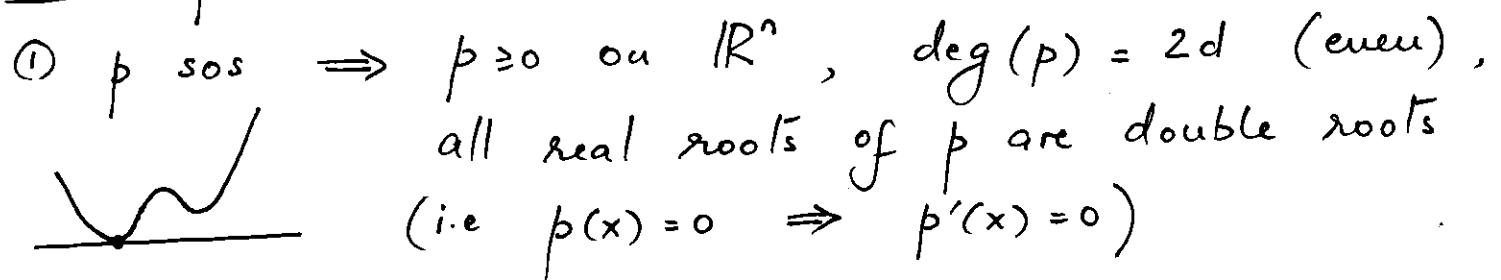 ① p sos ⟹ p ≥ 0 on ℝⁿ, deg(p) = 2d (even),
all real roots of p are double roots
(i.e p(x) = 0 ⟹ p′(x) = 0)